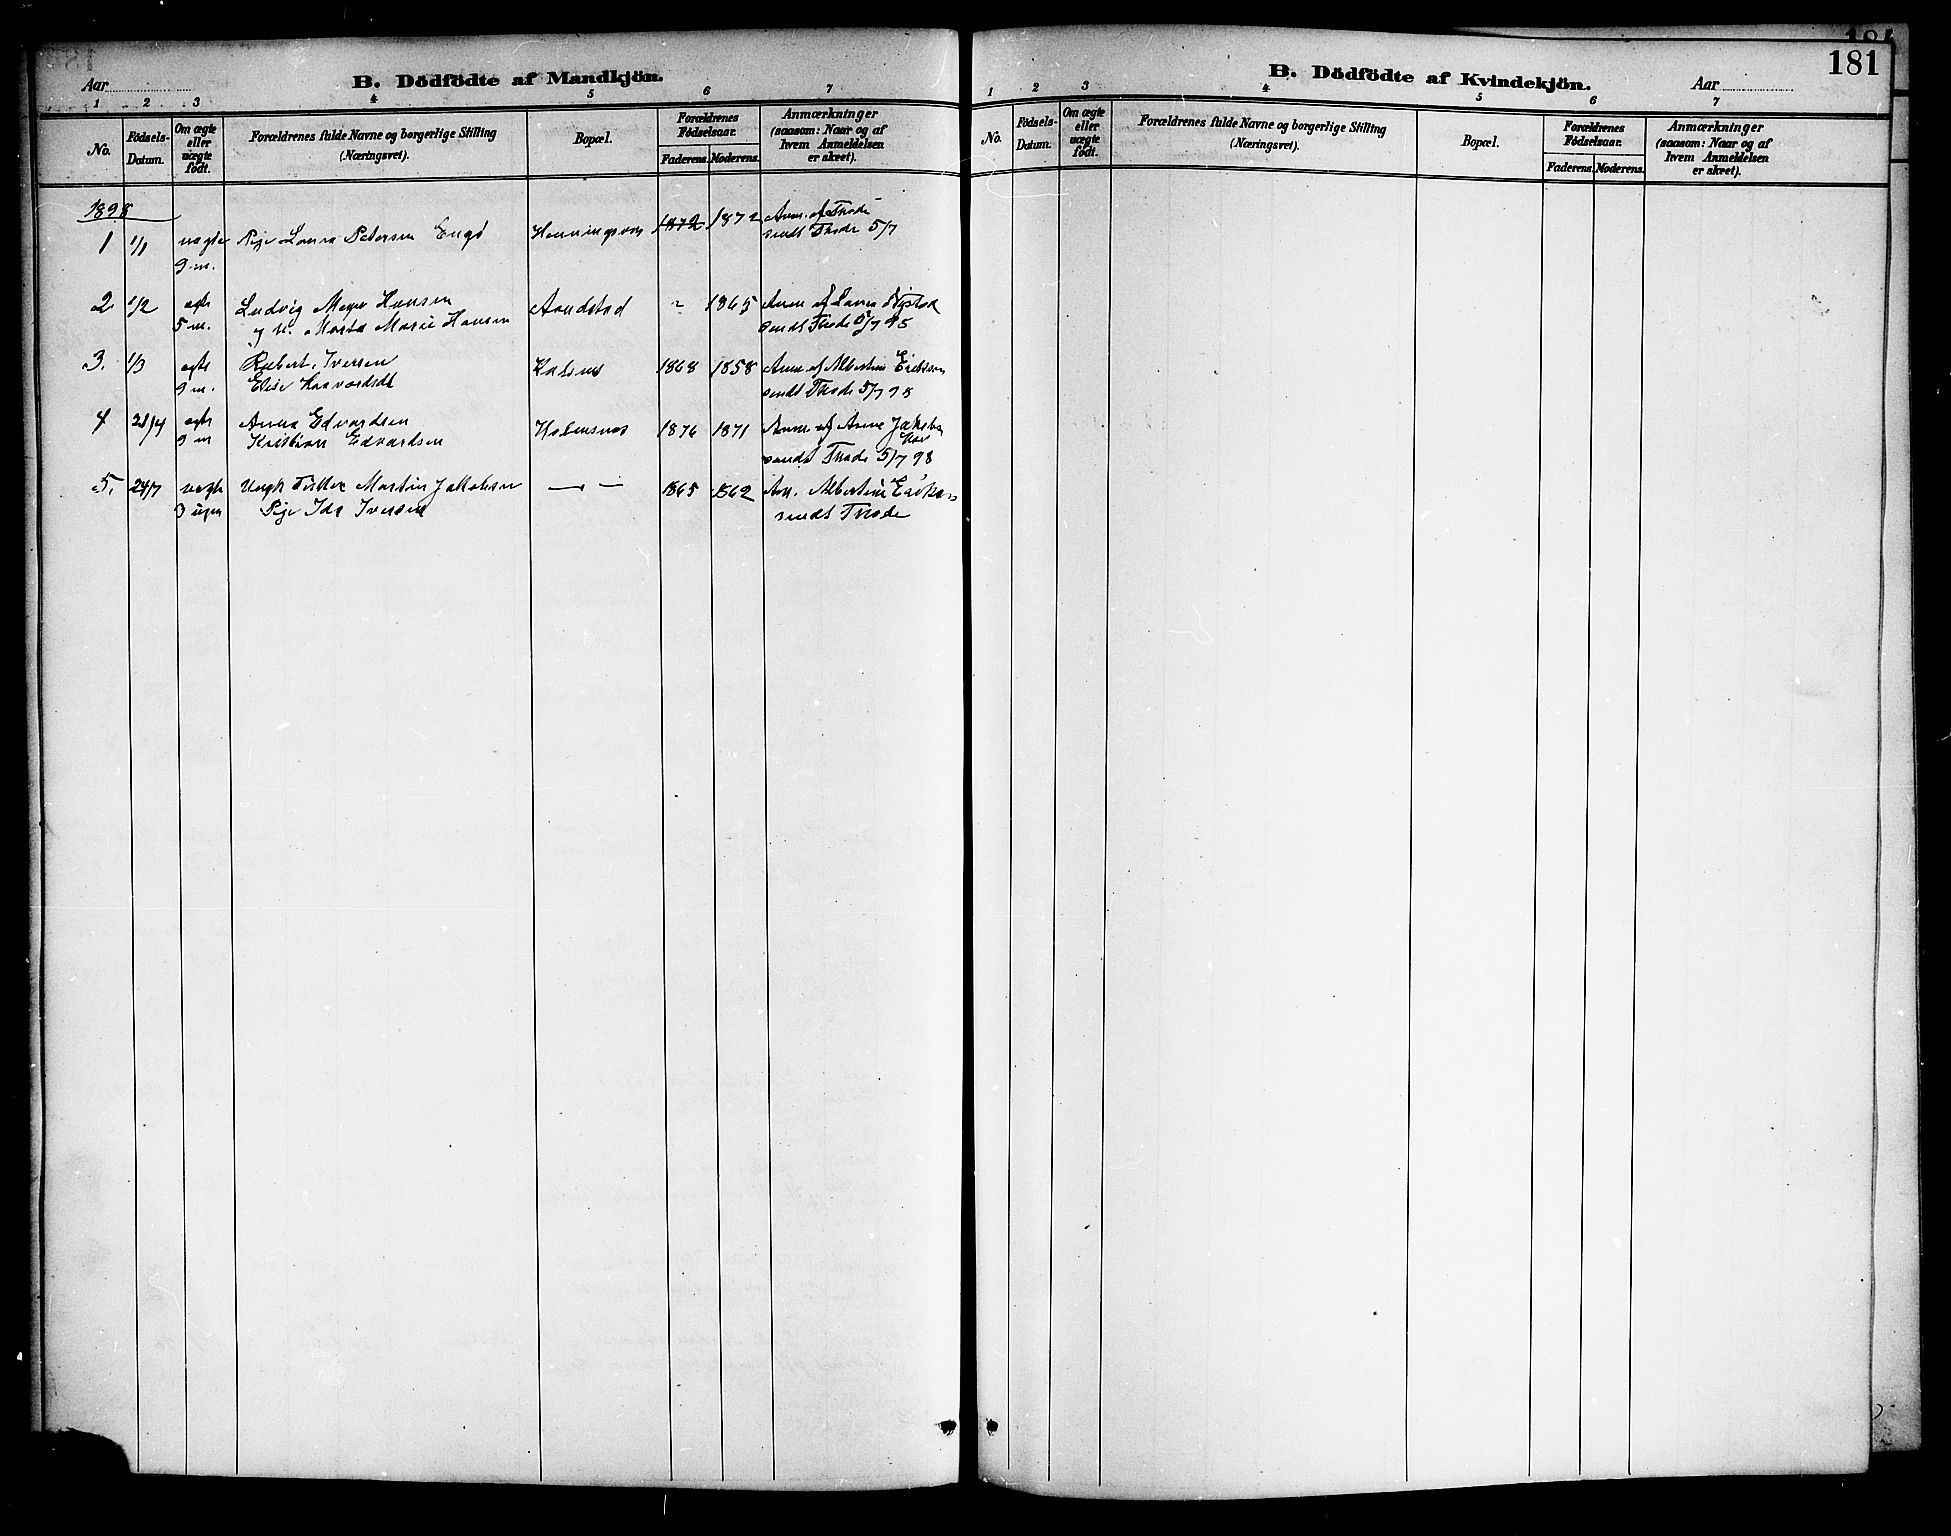 181
Aar
B. Dödfödte af Mandkjön.
1 2 3 4 5 6 7
No.
Födsels-Datum.
Om ægte eller uægte födt.
Forældrenes fulde Navne og borgerlige Stilling (Næringsvei).
Bopæl.
Forældrenes Födselsaar.
Faderens. Moderens.
Anmærkninger (saasom: Naar og af hvem Anmeldelsen er skeet).
1898
1 1/1 uægte Pige Laura Petersen Engø Honningsvog 1872 1872 Anm. af Thode
9 m. sendt Thode 5/7
2 1/2 ægte Ludvig Meyer Hansen 1865 Anm af
5 m. og H. Marta Marie Hansen sendt Thode 5/7 98
3. 1/3 ægte Robert Iversen 1868 1858 Anm af Albertine Eriksen
9 m. Elise sendt Thode 5/7 98
4 28/4 ægte Anna Edvardsen 1876 1871 Anm af Anne Jakobs
9 m Kristian Edvardsen
sendt Thode 5/7 98
5. 24/7 uægte Martin Jakobsen — " — 1865 1862 Anm. Albertine Eriks
3 uger Pige Ida Iversen sendt Thode
B. Dödfödte af Kvindekjön.
Aar
1 2 3 4 5 6 7
No.
Födsels-Datum.
Om ægte eller uægte födt.
Forældrenes fulde Navne og borgerlige Stilling (Næringsvei).
Bopæl.
Forældrenes Födselsaar.
Faderens. Moderens.
Anmærkninger (saasom: Naar og af hvem Anmeldelsen er skeet).